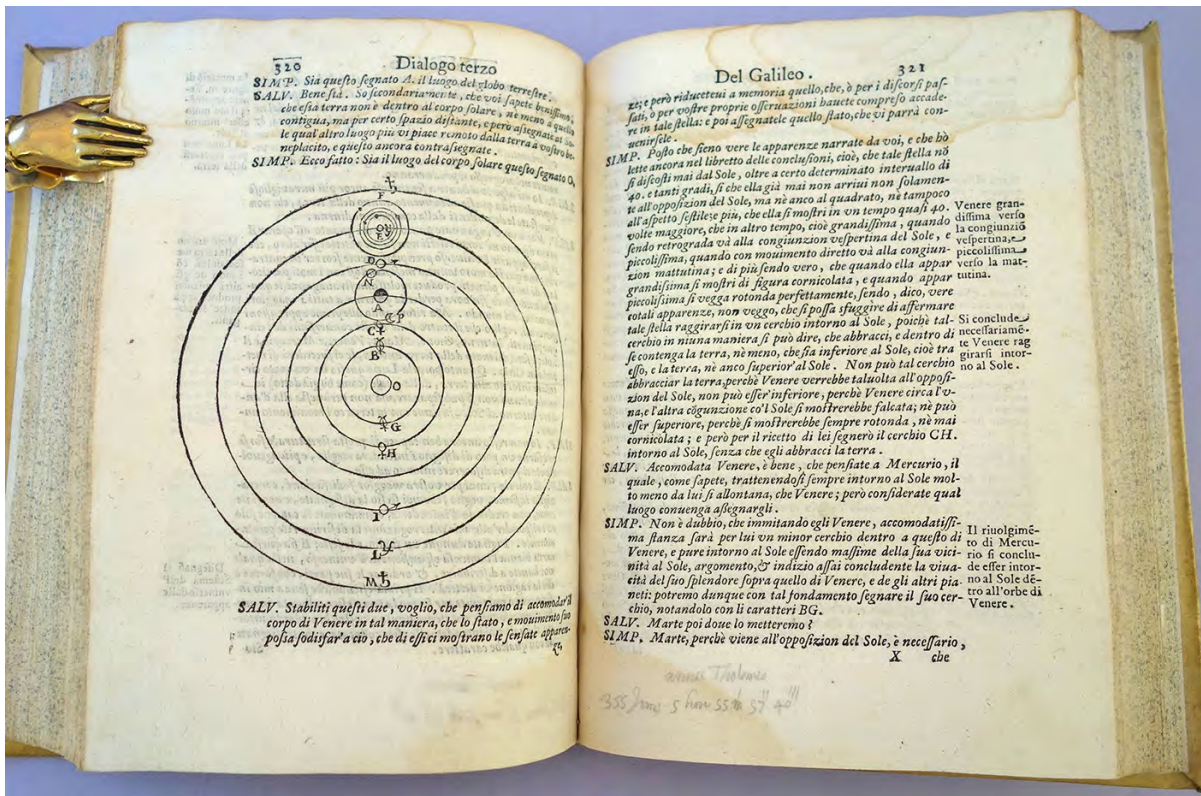 320 Dialogo terzo
SIMP. Sia questo segnato A. il luogo del globo terrestre.
SALV. Bene sta. So secondariamente, che voi sapete benissimo,
che essa terra non è dentro al corpo solare, nè meno a quello
contigua, ma per certo spazio distante, e però assegnate al So-
le qual'altro luogo più vi piace remoto dalla terra a vostro be-
neplacito, e questo ancora contrasegnate.
SIMP. Ecco fatto: Sia il luogo del corpo solare questo segnato O,
♄
E
D
N
A
C P
C
B
O
G
H
I
L ♃
M ♄
SALV. Stabiliti questi due, voglio, che pensiamo di accomodar'il
corpo di Venere in tal maniera, che lo stato, e mouimento suo
possa sodisfar'a ciò, che di essi ci mostrano le sensate apparen-
ze,
Del Galileo. 321
ze; e però riduceteui a memoria quello, che, ò per i discorsi pas-
sati, ò per vostre proprie osseruazioni hauete compreso accade-
re in tale stella: e poi assegnatele quello stato, che vi parrà con-
uenirsele.
SIMP. Posto che sieno vere le apparenze narrate da voi, e che hò
lette ancora nel libretto delle conclusioni, cioè, che tale stella nõ
si discosti mai dal Sole, oltre a certo determinato interuallo di
40. e tanti gradi, sì che ella già mai non arriui non solamen-
te all'opposizion del Sole, ma nè anco al quadrato, nè tampoco
all'aspetto sestile: e più, che ella si mostri in vn tempo quasi 40.
volte maggiore, che in altro tempo, cioè grandissima, quando
sendo retrograda và alla congiunzion vespertina del Sole, e
piccolissima, quando con mouimento diretto và alla congiun-
zion mattutina; e di più sendo vero, che quando ella appar
grandissima si mostri di figura cornicolata, e quando appar
piccolissima si vegga rotonda perfettamente, sendo, dico, vere
cotali apparenze, non veggo, che si possa sfuggire di affermare
tale stella raggirarsi in vn cerchio intorno al Sole, poichè tal-
cerchio in niuna maniera si può dire, che abbracci, e dentro di
se contenga la terra, nè meno, che sia inferiore al Sole, cioè tra
esso, e la terra, nè anco superior'al Sole. Non può tal cerchio
abbracciar la terra, perchè Venere verrebbe taluolta all'opposi-
zion del Sole, non può esser'inferiore, perchè Venere circa l'v-
na, e l'altra cõgunzione co'l Sole si mostrerebbe falcata; nè può
esser superiore, perchè si mostrerebbe sempre rotonda, nè mai
cornicolata; e però per il ricetto di lei segnerò il cerchio CH.
intorno al Sole, senza che egli abbracci la terra.
SALV. Accomodata Venere, è bene, che pensiate a Mercurio, il
quale, come sapete, trattenendosi sempre intorno al Sole mol-
to meno da lui si allontana, che Venere; però considerate qual
luogo conuenga assegnargli.
SIMP. Non è dubbio, che immitando egli Venere, accomodatissi-
ma stanza sarà per lui vn minor cerchio dentro a questo di
Venere, e pure intorno al Sole essendo massime della sua vici-
nità al Sole, argomento, & indizio assai concludente la viua-
cità del suo splendore sopra quello di Venere, e de gli altri pia-
neti: potremo dunque con tal fondamento segnare il suo cer-
chio, notandolo con li caratteri BG.
SALV. Marte poi doue lo metteremo?
SIMP. Marte, perchè viene all'opposizion del Sole, è necessario,
X che
Venere gran-
dissima verso
la congiunziõ
vespertina, e
piccolissima
verso la mat-
tutina.
Si conclude
necessariamẽ-
te Venere rag
girarsi intor-
no al Sole.
Il riuolgimẽ-
to di Mercu-
rio si conclu-
de esser intor-
no al Sole dẽ-
tro all'orbe di
Venere.